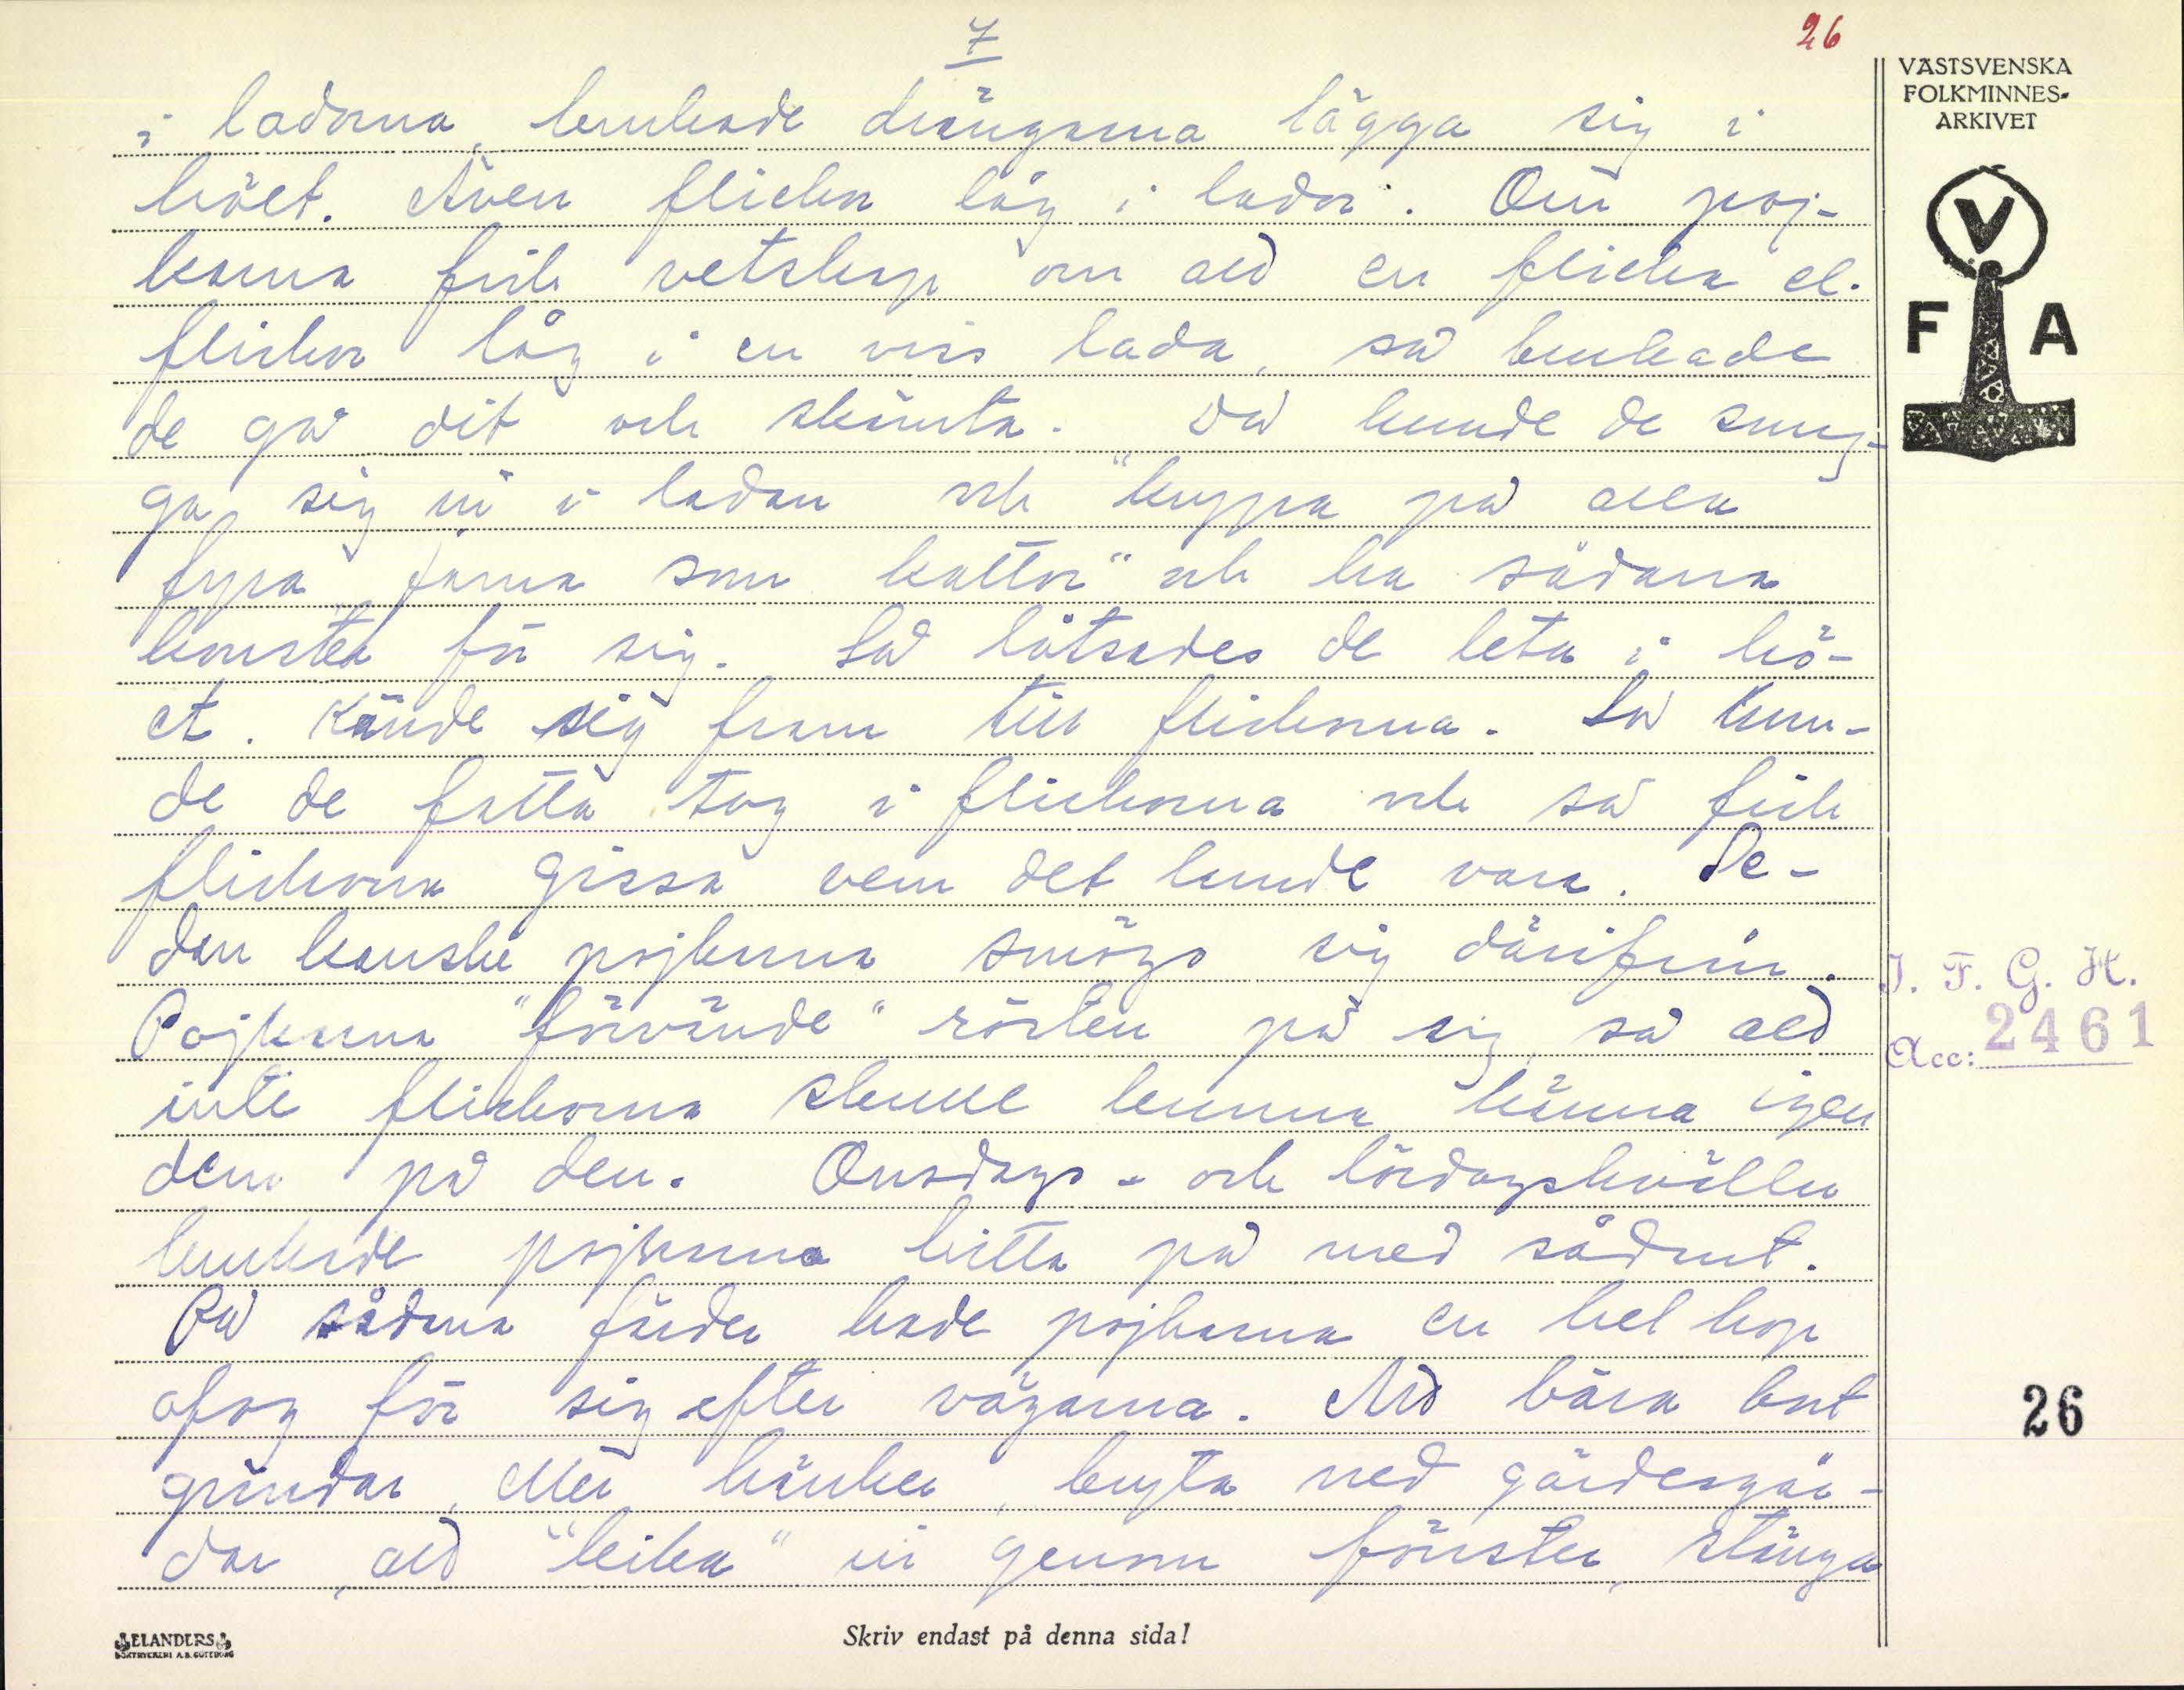 7
26
VÄSTSVENSKA
FOLKMINNES-
ARKIVET
V
F A
i ladorna, brukade drängarna lägga sig i
höet. Även flickor låg i lador. Om poj-
karna fick vetskap om att en flicka el.
flickor låg i en viss lada, så brukade
de gå dit och skämta. Då kunde de smyg-
ga sig in i ladan och "kryppa på alla
fyra farna som kattor" och ha sådana
konster för sig. Så låtsades de leta i hö-
et. Kände sig fram till flickorna. Så kun-
de de fatta tag i flickorna och så fick
flickorna gissa vem det kunde vara. Se-
dan kanske pojkarna smögo sig därifrån.
Pojkarna "förvände" rösten på sig, så att
inte flickorna skulle kunna känna igen
dem på den. Onsdags- och lördagskvällar
brukade pojkarna hitta på med sådant.
På sådana färder hade pojkarna en hel hop
ofog för sig efter vägarna. Att bära bort
grindar, eller bänkar, bryta ned gärdesgår-
dar, att "kika" in genom fönster, stänga
J. F. G. H.
Acc: 2461
26
ELANDERS
BOKTRYCKERI A.B. GÖTEBORG
Skriv endast på denna sida!